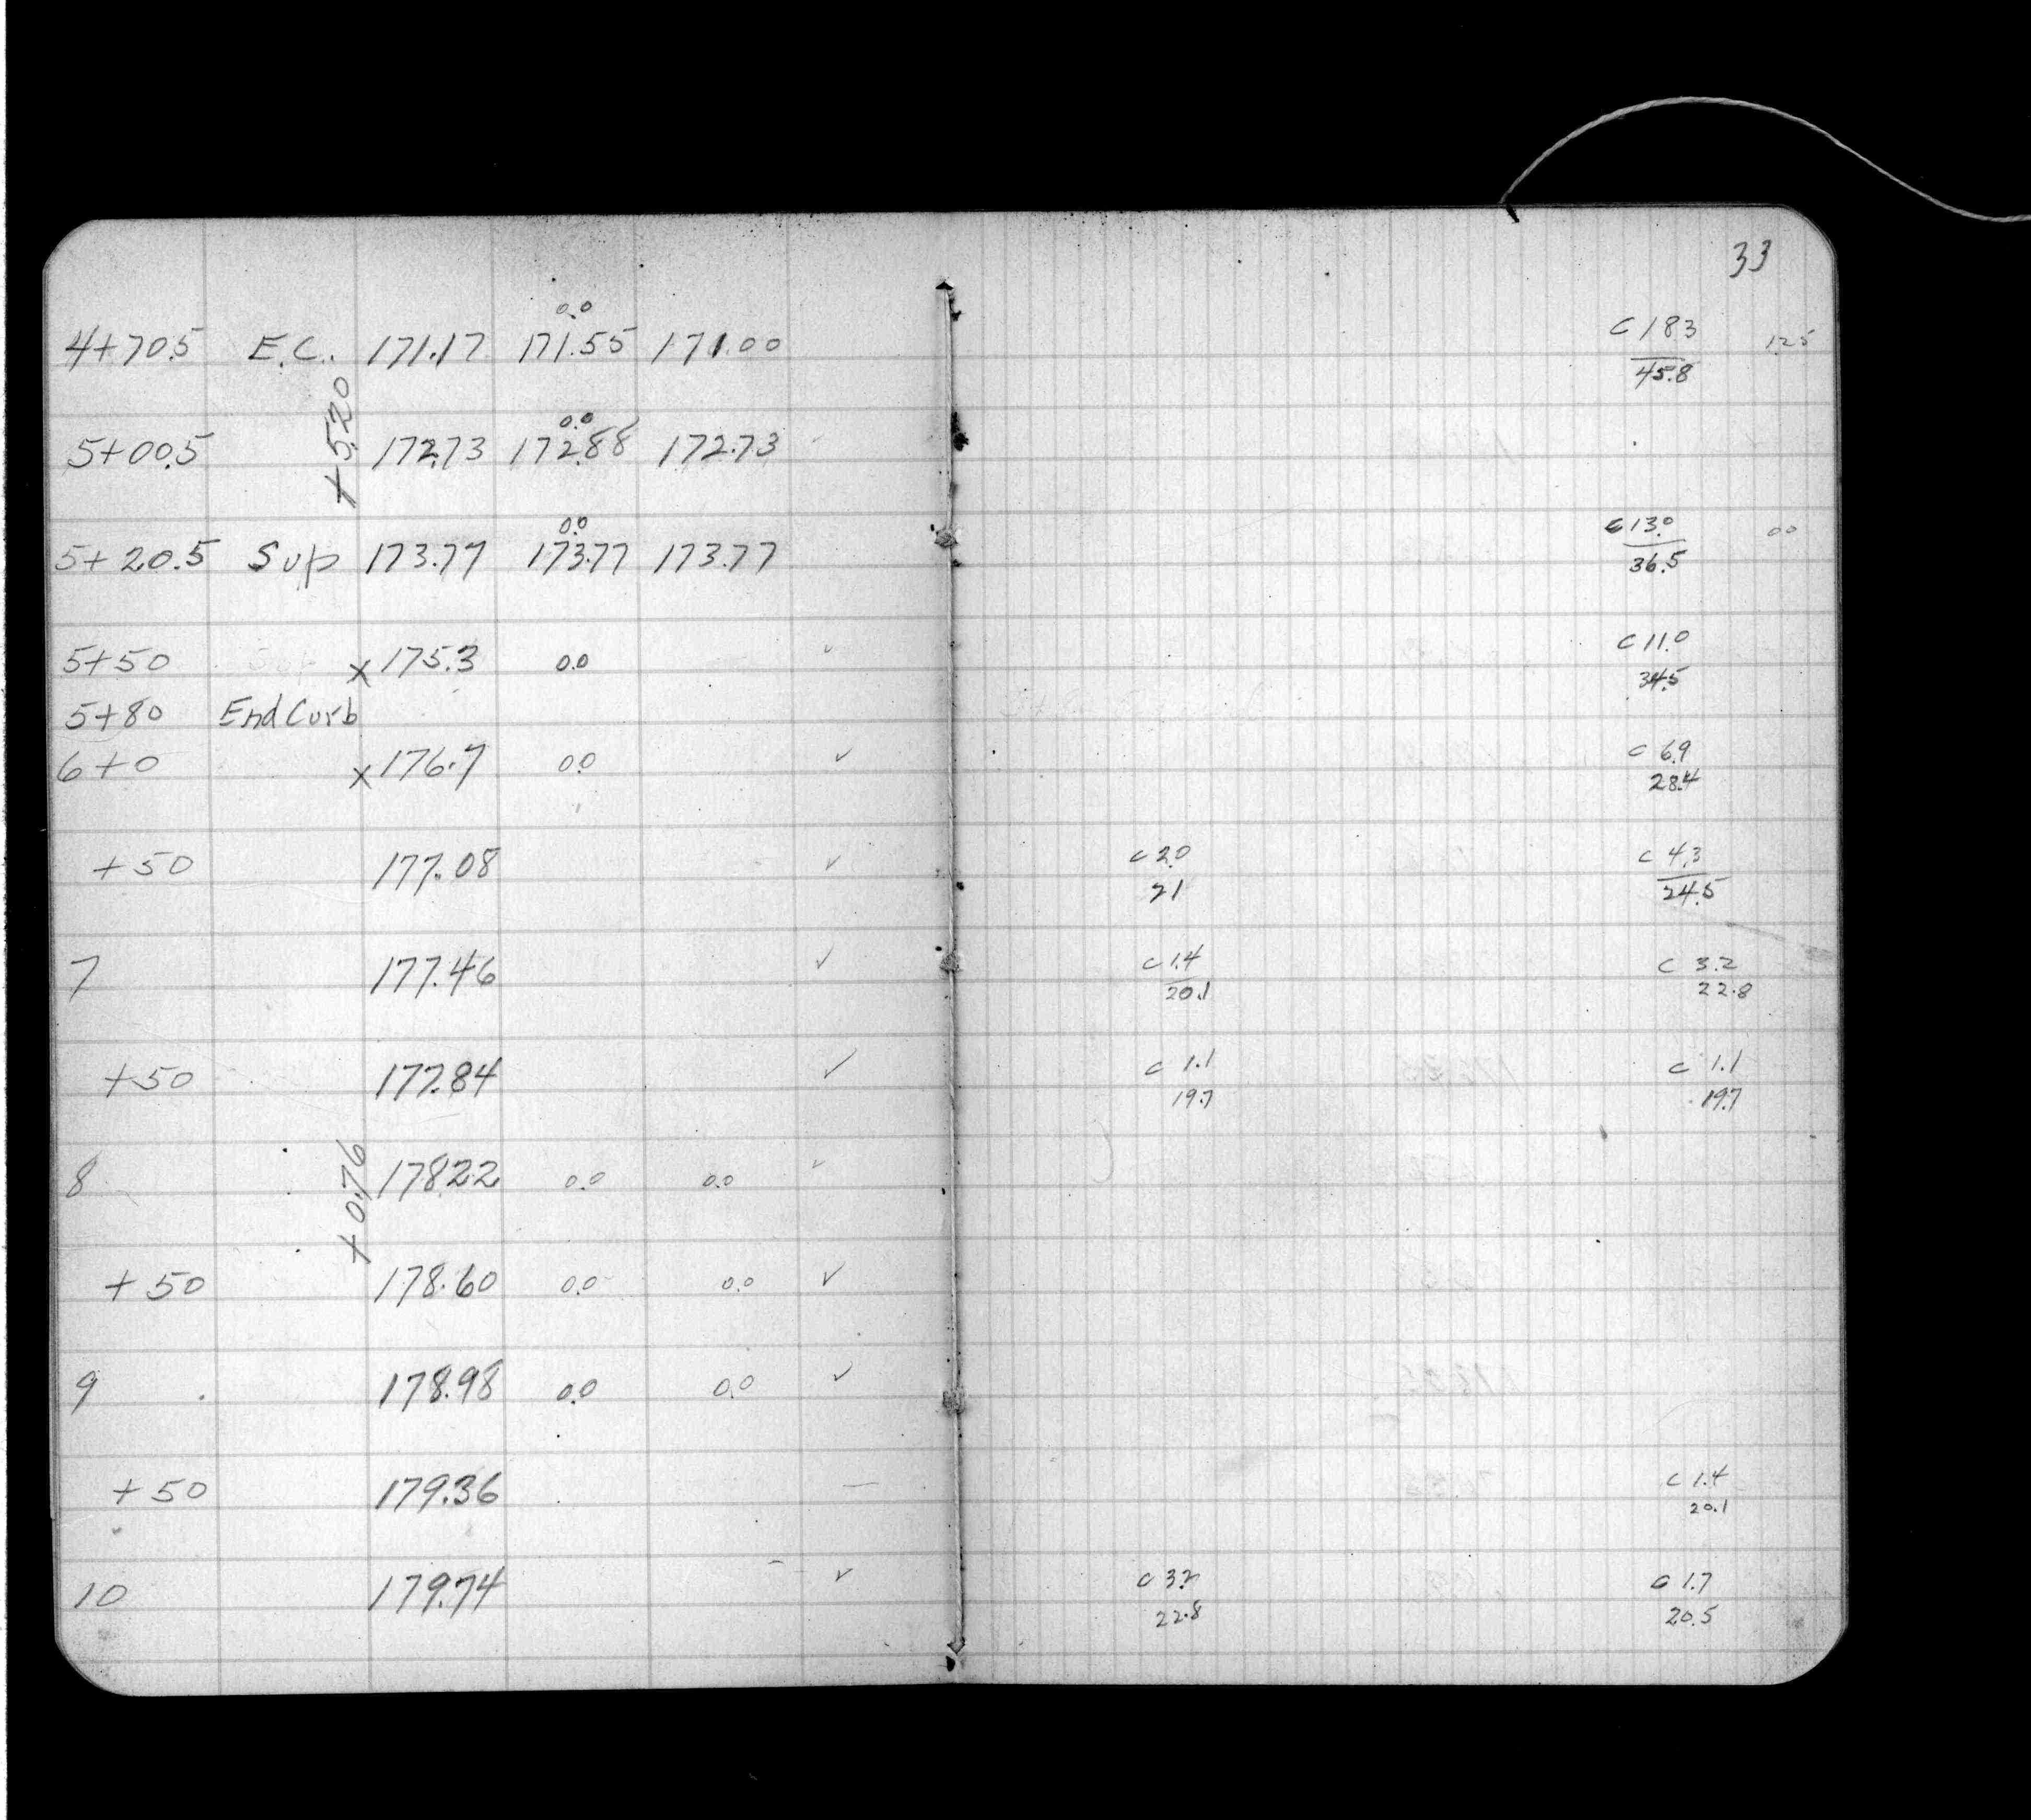 33
0.0
4+70.5 E.C. 171.17 171.55 171.00 C 18.3 12.5
45.8
+5.20
0.0
5+00.5 172.73 172.88 172.73
0.0
5+20.5 Sup 173.77 173.77 173.77 C 13.0 0.0
36.5
5+50 x 175.3 0.0 C 11.0
34.5
5+80 End Curb
6+0 x 176.7 0.0 ✓ C 6.9
28.4
+50 177.08 ✓ C 2.0 C 4.3
21 24.5
7 177.46 ✓ C 1.4 C 3.2
20.1 22.8
+50 177.84 ✓ C 1.1 C 1.1
19.7 19.7
+0.76
8 178.22 0.0 0.0 ✓
+50 178.60 0.0 0.0 ✓
9 178.98 0.0 0.0 ✓
+50 179.36 — C 1.4
20.1
10 179.74 ✓ C 3.2 C 1.7
22.8 20.5